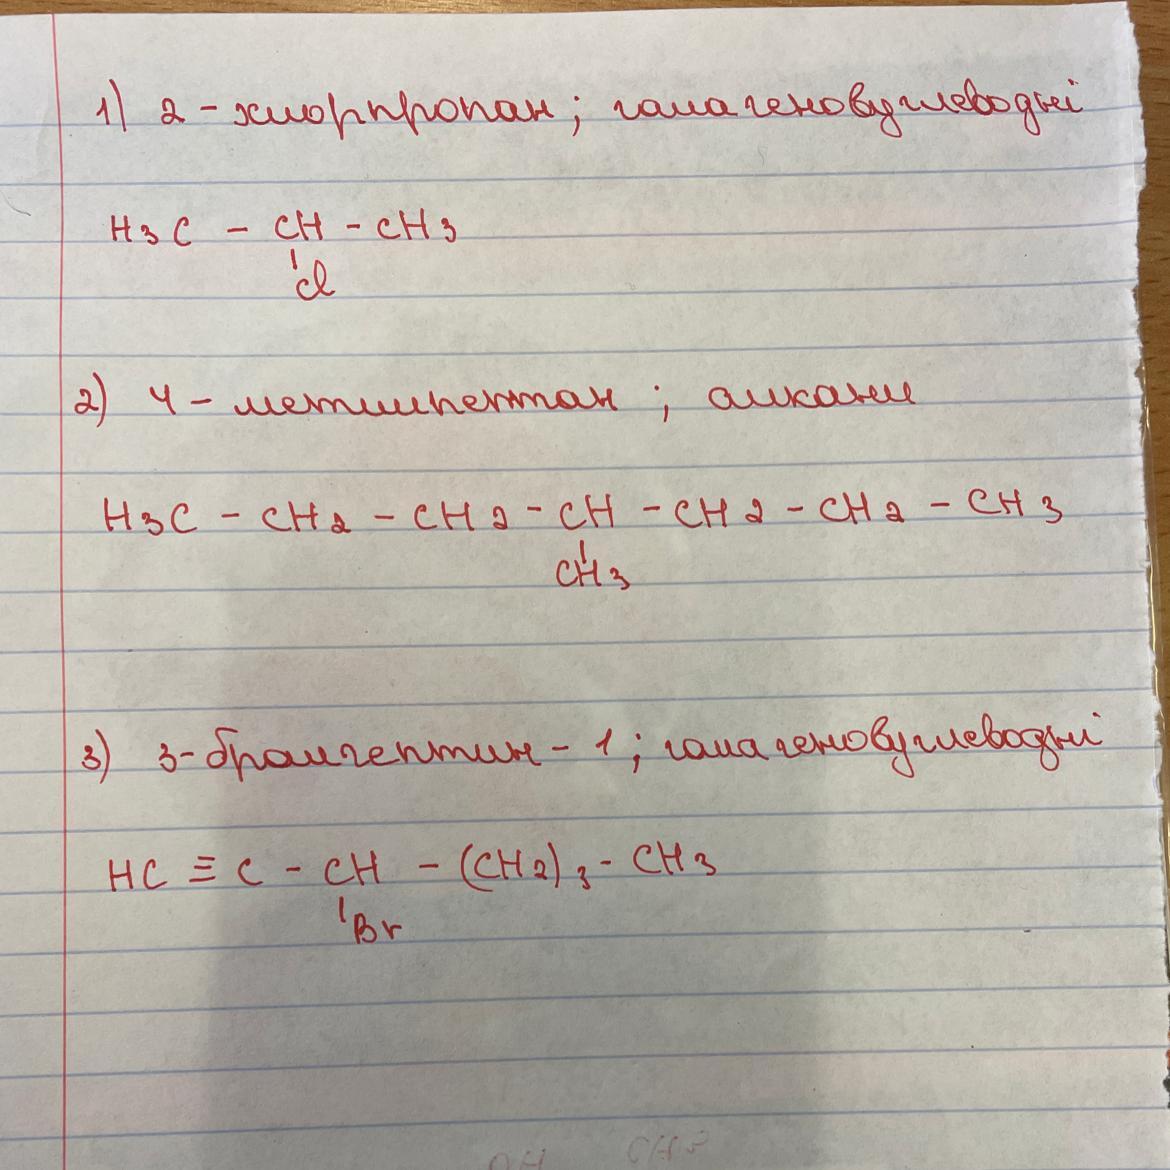 1) 2-хлорпропан; галагеновуглеводні
H3C - CH - CH3
Cl
2) 4-метилпентан; алкани
H3C - CH2 - CH2 - CH - CH2 - CH2 - CH3
CH3
3) 3-бромгептин-1; галагеновуглеводні
HC ≡ C - CH - (CH2)3 - CH3
Br